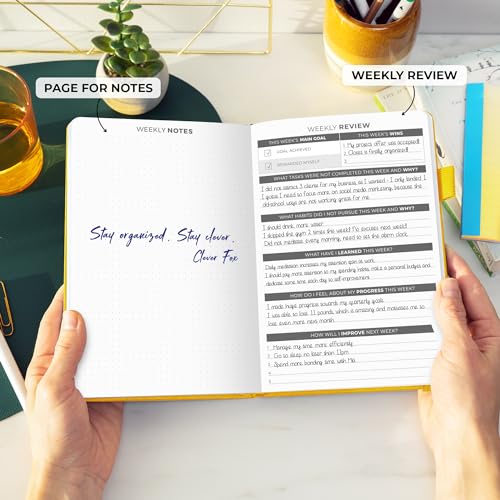 PAGE FOR NOTES
WEEKLY REVIEW
WEEKLY NOTES
Stay organized. Stay clever.
Clever Fox
WEEKLY REVIEW
THIS WEEK'S MAIN GOAL
THIS WEEK'S WINS
GOAL ACHIEVED
REWARDED MYSELF
1. My project offer was accepted!
2. Closet is finally organized!
3.
WHAT TASKS WERE NOT COMPLETED THIS WEEK AND WHY?
I did not contact 3 clients for my business as I wanted - I only landed 1
I guess I need to focus more on social media marketing, because the
old-school ways are not working great for me
WHAT HABITS DID I NOT PURSUE THIS WEEK AND WHY?
I should drink more water
I skipped the gym 2 times this week! No excuses next week!
Did not meditate every morning, need to set the alarm clock
WHAT HAVE I LEARNED THIS WEEK?
Daily meditation increases my attention span at work
I should pay more attention to my spending habits, make a personal budget and
dedicate some time each day to self-improvement
HOW DO I FEEL ABOUT MY PROGRESS THIS WEEK?
I made huge progress towards my quarterly goals
I was able to lose 1.1 pounds, which is amazing and motivates me to
lose even more next month
HOW WILL I IMPROVE NEXT WEEK?
1. Manage my time more efficiently
2. Go to sleep no later than 11pm
3. Spend more bonding time with Mia
4.
5.